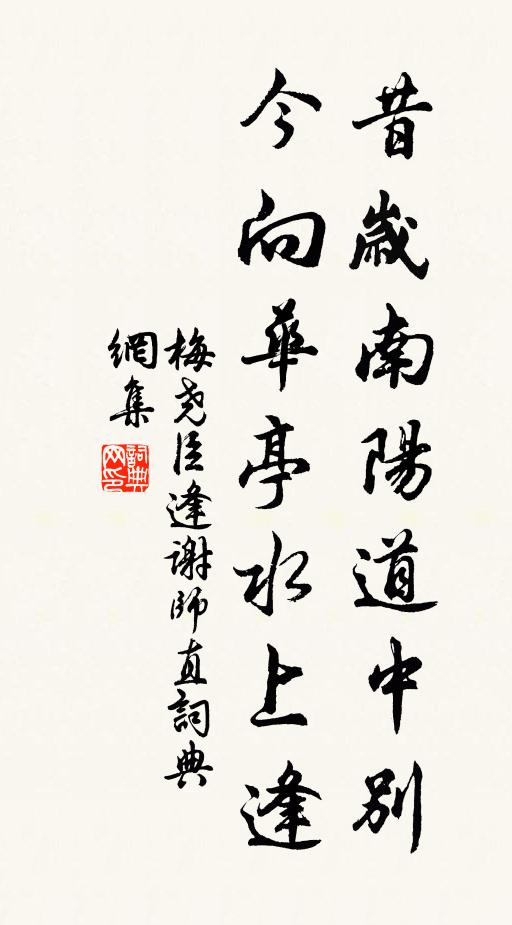 昔歲南陽道中別
今向華亭水上逢
梅堯臣逢謝師直詞典
網集
詞典网印